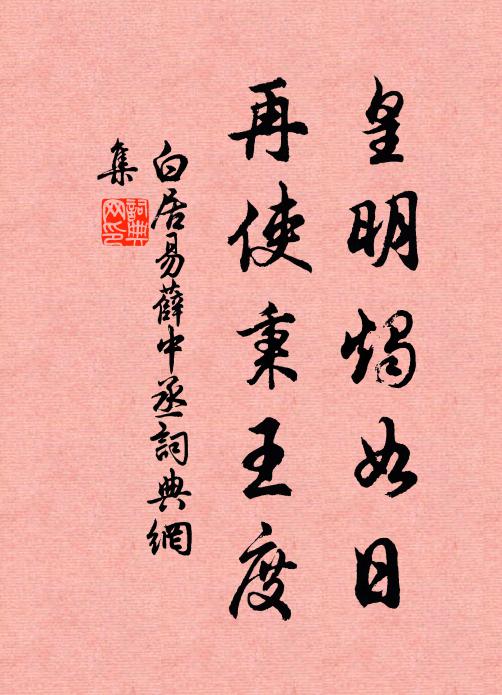 皇明燭如日
再使秉王度
白居易薛中丞詞典網
集
詞典
网印